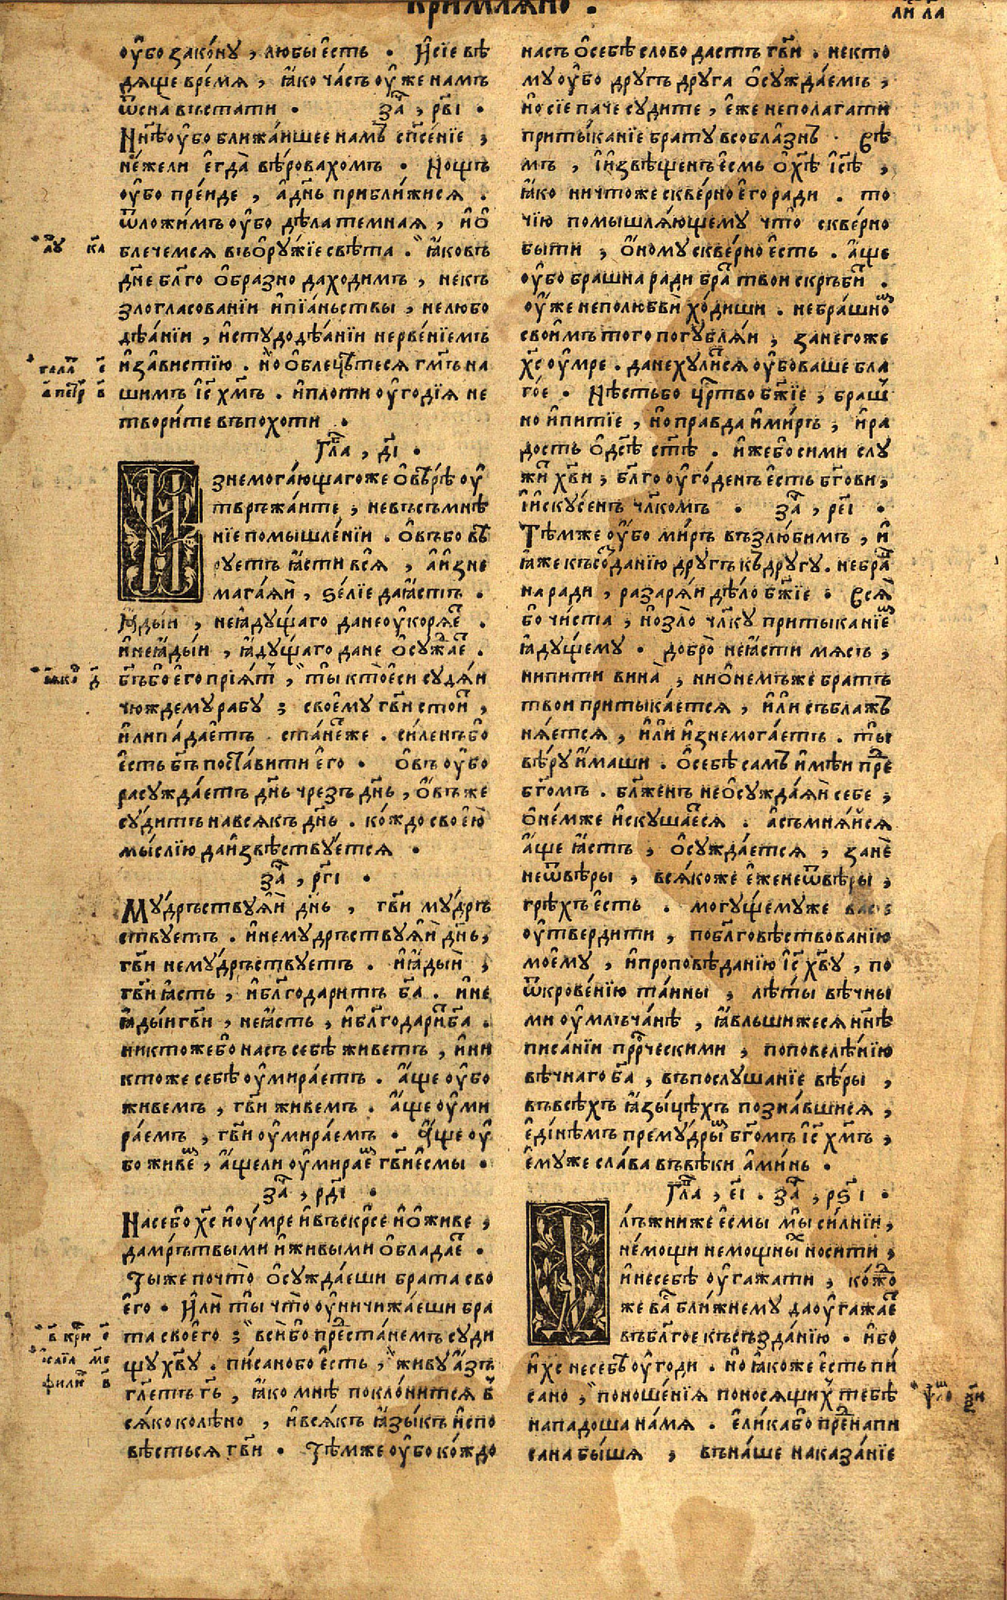 К римлѧно .
ли ла
оу҆бо зако́ну , любы е҆сть . И҆ сїе вѣ
дѧще вре́мѧ , ꙗ҆ко ча́съ оу҆же намъ
ѿ сна въстати . за҄ , рв҃і .
Нн҃ѣ оу҆бо ближа́ишее намъ сп҃се́нїе ,
не́жели е҆гда̀ вѣ́ровахомъ . Нощъ
оу҆бо пре́иде , а҆ дн҃ь прибли́жисѧ .
ѿложи́мъ оу҆бо дѣ́ла темнаѧ , и҆ о҆
блечемсѧ въ о҆ру́жїе свѣ́та . ꙗ҆ко въ
дн҃е бл҃го о҆бразно да ходимъ , не къ
злогласованїи и҆ пїа́ньствы , не любо
дѣ́анїи , и҆ студодѣ́анїи не рвенїемъ
и҆ за́вистїю . но о҆блецѣ́тесѧ гм҃ъ на
шимъ і҆с҃ хм҃ъ . и҆ плоти оу҆го́дїѧ не
твори́те въ похоти .
Гла҄ , д҃і .
Изнемога́ющаго же о҆ вѣ́рѣ оу҆
твръжа́ите , не въ съмнѣ
нїе помышле́нїи . о҆въ бо вѣ
руетъ ꙗ҆сти всѧ̀ , а҆ и҆зне
мага́ѧи , ѕе́лїе да ꙗ҆стъ .
Ꙗ҆ды́и , не ꙗ҆ду́щаго да не оу҆корѧ́е .
и҆ не ꙗ҆ды́и , ꙗ҆ду́щаго да не о҆сужа́е .
бг҃ъ бо е҆го прїѧ́т , ты̀ кто̀ е҆си судѧ́и
чюждему рабу ; своему гв҃и стои́т ,
и҆ли па́даетъ . ста́нет же . си́ленъ бо
е҆сть бг҃ъ поста́вити е҆го . О҆въ оу҆бо
расужда́етъ дн҃ь чрезъ дн҃ь , о҆въ же
су́дитъ на всѧкъ дн҃ь . ко́ждо свое́ю
мы́слїю да и҆звѣ́ствуетсѧ .
за҄ , рг҃і .
Му́дръствуѧ́и дн҃ь , гв҃и му́дръ
ствуетъ . и҆ не му́дръствуѧ́и дн҃ь ,
гв҃и не му́дръствуетъ . и҆ ꙗ҆ды́и ,
гв҃и ꙗ҆сть , и҆ бл҃годаритъ б҃а . и҆ не
ꙗ҆ды́и гв҃и , не ꙗ҆сть , и҆ бл҃годари́т б҃а .
никто́же бо насъ себѣ живетъ , и҆ ни
кто́же себѣ оу҆мира́етъ . а҆́ще оу҆бо
живемъ , гв҃и живемъ . а҆́ще оу҆ми
ра́емъ , гв҃и оу҆мира́емъ . а҆́ще оу҆
бо живе́м , а҆́ще ли оу҆мира́ем гв҃и е҆смы .
за҄ , рд҃і .
На се бо хс҃ и҆ оу҆мре и҆ въскр҃се и҆ о҆живе ,
да мръ́твыми и҆ живыми о҆блада́е .
Ты же почто̀ о҆сужда́еши брата сво
е҆го . И҆лѝ ты̀ что̀ оу҆ничижа́еши бра
та своего ; вси́ бо предста́немъ суди
щу хв҃у . пи́сано бо е҆сть , живу̀ а҆зъ
гл҃етъ гь҃ , ꙗ҆ко мнѣ покло́нитсѧ в
сѧко колѣ́но , и҆ всѧкъ ꙗ҆зы́къ и҆спо
вѣ́стьсѧ гв҃и . Тѣ́мже оу҆бо ко́ждо
насъ о҆ себѣ слово да́стъ гв҃и , не кто
му оу҆бо другъ дру́га о҆сужда́емъ ,
но сїе паче суди́те , е҆же не полага́ти
притыка́нїе брату в соблазнъ . Вѣ́
мъ , и҆ и҆звѣ́щенъ е҆смь о҆ хс҃ѣ і҆с҃ѣ ,
ꙗ҆ко ничто́же скве́рно е҆го ради . то
чїю помышлѧ́ющему что̀ скве́рно
быти , о҆ному скве́рно е҆сть . а҆́ще
оу҆бо бра́шна ради бра́т твои скръби́т .
оу҆же не по любвѝ хо́диши . не бра́шном
свои́мъ того погублѧ́и , за него же
хс҃ оу҆мре . да не ху́литсѧ оу҆бо ваше бла
го́е . Нѣ́сть бо цр҃тво бж҃їе , браш
но и҆ питїе , но правда и҆ ми́ръ , и҆ ра
дость о҆ дс҃ѣ ст҃ѣ . и҆же бо сими слу
жи́т хв҃и , бл҃гооу҆го́денъ е҆сть бг҃ови ,
и҆ и҆ску́сенъ чл҃комъ . за҄ , ре҃і .
Тѣ́мже оу҆бо ми́ръ възлю́бимъ , и҆
ꙗ҆же къ созданїю другъ къ дру́гу . не бра́ш
на ради , разарѧ́и дѣло бж҃їе . Всѧ̀
бо чи́ста , но зло чл҃ку притыка́нїем
ꙗ҆ду́щему . добро̀ не ꙗ҆сти мѧсъ ,
ни пити вина̀ , ни о҆ немъ же братъ
твои притыка́етсѧ , и҆лѝ съблажъ
нѧ́етсѧ , и҆лѝ и҆знемога́етъ . ты̀
вѣ́ру и҆́маши . о҆ себѣ самъ и҆мѣ́и пре́д
бг҃омъ . бл҃же́нъ не о҆сужда́ѧи себе ,
о҆ не́мже и҆скуша́етсѧ . а҆ съмнѧ́исѧ
а҆́ще ꙗ҆стъ , о҆сужда́етсѧ , занѐ
не ѿ вѣ́ры , всѧ́ко же е҆же не ѿ вѣ́ры ,
грѣ́хъ е҆сть . могу́щему же васъ
оу҆тверди́ти , по бл҃говѣ́ствованїю
мое́му , и҆ проповѣ́данїю і҆с҃ хв҃у , по
ѿкрове́нїю та́ины , лѣ́ты вѣ́чны
ми оу҆млъча́нѣ , ꙗ҆вльши́жесѧ нн҃ѣ
писа́нїи прр҃ческими , по повелѣ́нїю
вѣ́чнаго б҃а , въ послуша́нїе вѣ́ры ,
въ всѣ́хъ ꙗ҆зы́цѣхъ позна́вшисѧ ,
е҆ди́нѣмъ прему́дры бг҃омъ і҆с҃ хм҃ъ ,
е҆му́же сла́ва въ вѣ́ки а҆ми́нь .
Гла҄ , е҃і . за҄ , рѕ҃і .
Длъжни же е҆смы мы̀ си́лнїи ,
не́мощи немощны́х носи́ти ,
и҆ не себѣ̀ оу҆гажати , ко́ждо
же ва́с бли́жнему да оу҆гажа́ет
въ бл҃гое къ създа́нїю . и҆бо
и҆ хс҃ не себѣ оу҆годи . но ꙗ҆коже е҆сть пи́
сано , поноше́нїѧ поносѧщих тебѣ̀
нападоша на́ мѧ . е҆лика бо пре́д напи
сана бы́шѧ , въ на́ше наказа́нїе